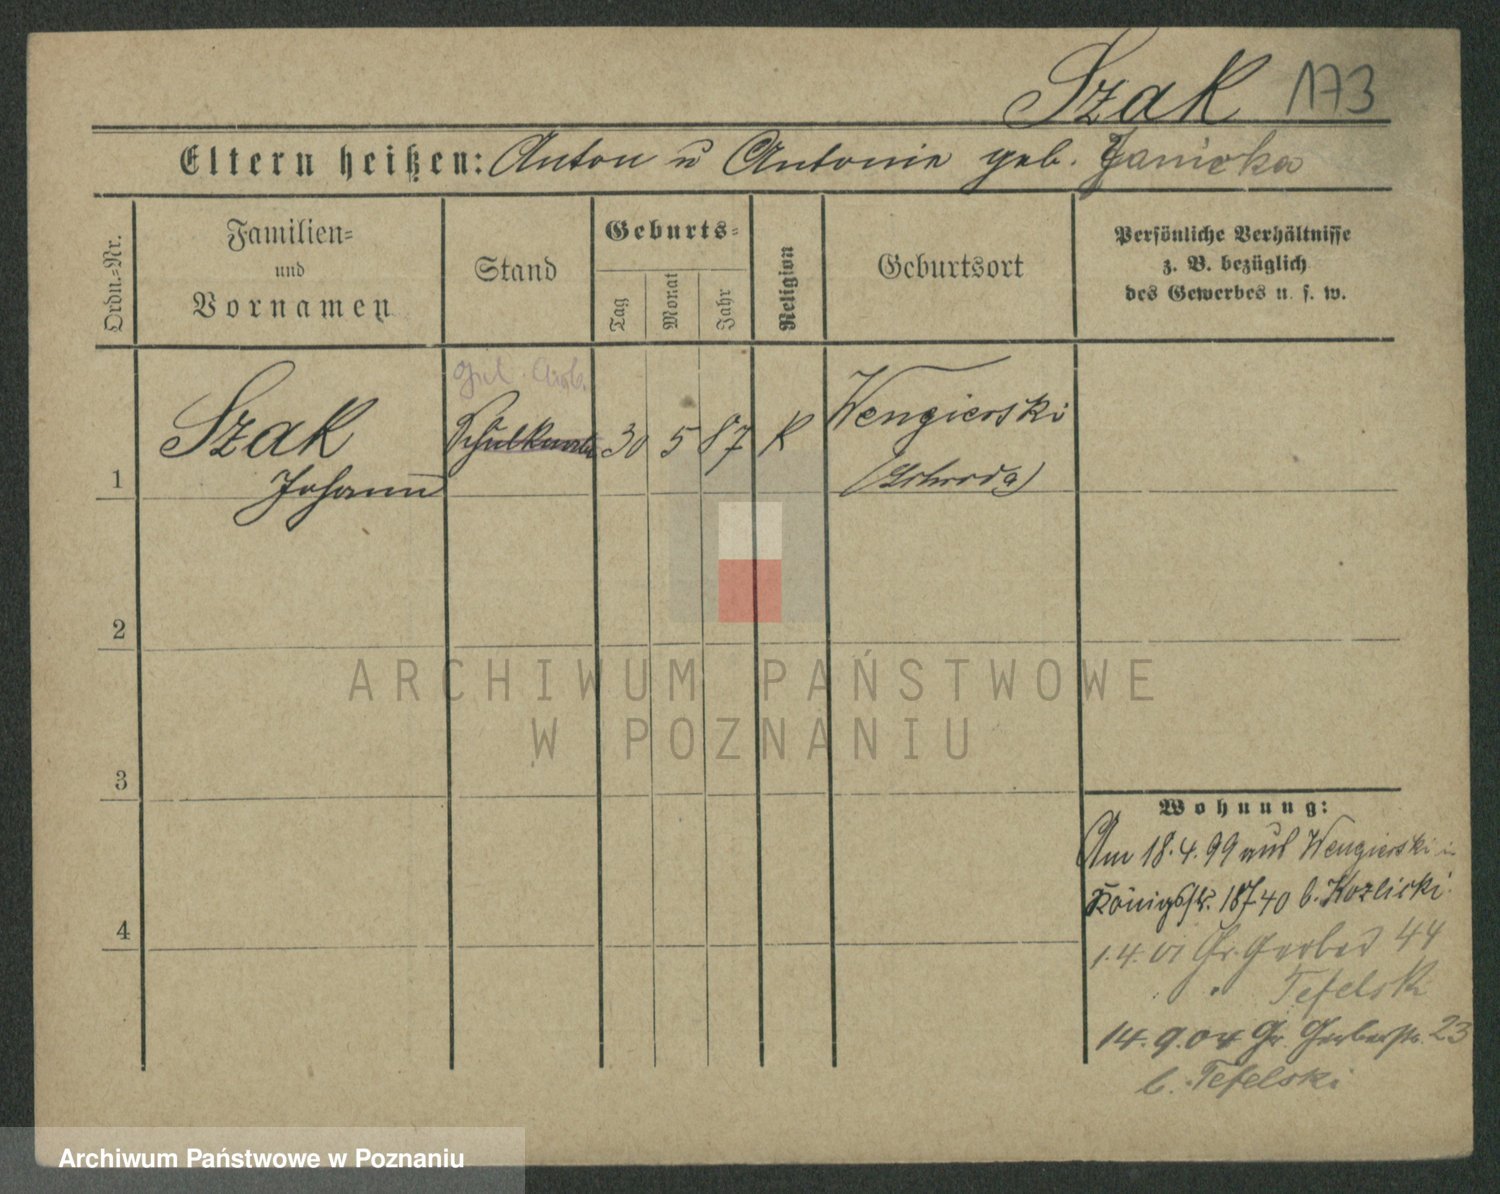 Szak 173
Eltern heißen: Anton u Antonie geb. Janicka
Ordn.-Nr.
Familien-
und
Vornamen
Stand
Geburts-
Tag
Monat
Jahr
Religion
Geburtsort
Persönliche Verhältnisse
z. B. bezüglich
des Gewerbes u. s. w.
Arb.
1 Szak 30 5 87 K Wengierski
Johann (Schroda)
2
ARCHIWUM PAŃSTWOWE
W POZNANIU
3
Wohnung:
Am 18.4.99 aus Wengierski in
Königsstr. 18/40 b. Kozlicki
4
1.4.01 Gr. Gerber 44
Tefelski
14.9.04 Gr. Gerberstr. 23
b. Tefelski
Archiwum Państwowe w Poznaniu